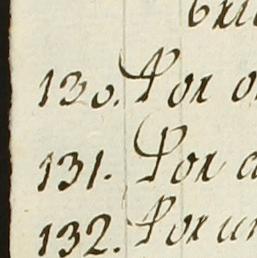 130. Por
131. Por
132. Por un